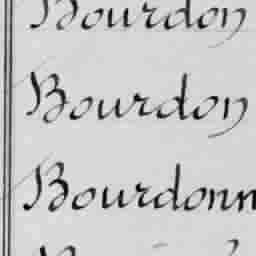 Bourdon
Bourdon
Bourdonn